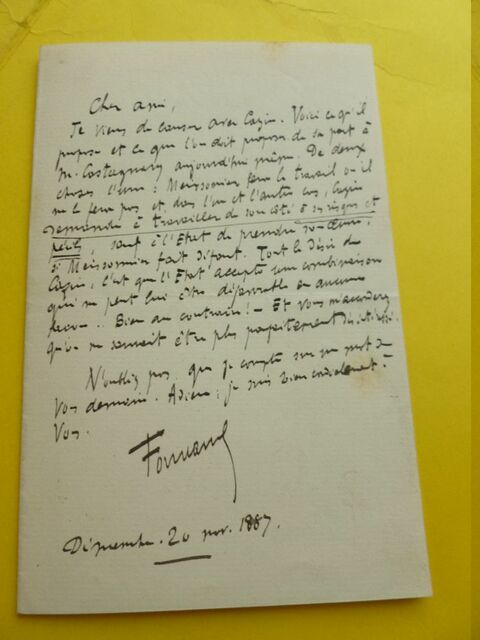 Cher ami,
Je viens de causer avec Cazin. Voici ce qu'il
propose et ce que l'on doit proposer de sa part à
M. Castagnary aujourd'hui même. De deux
choses l'une : Meissonier fera le travail ou il
ne le fera pas et, dans l'un et l'autre cas, Cazin
demande à travailler de son côté à ses risques et
périls, sauf à l'Etat de prendre son œuvre,
si Meissonnier fait défaut. Tout le désir de
Cazin, c'est que l'Etat accepte une combinaison
qui ne peut lui être défavorable en aucune
façon.. Bien au contraire! - Et vous m'accorderez
qu'on ne saurait être plus parfaitement désintéressé.
N'oubliez pas que je compte sur un mot de
vous demain. Adieu : je suis bien cordialement à
Vous.
Dimanche. 20 nov. 1887.